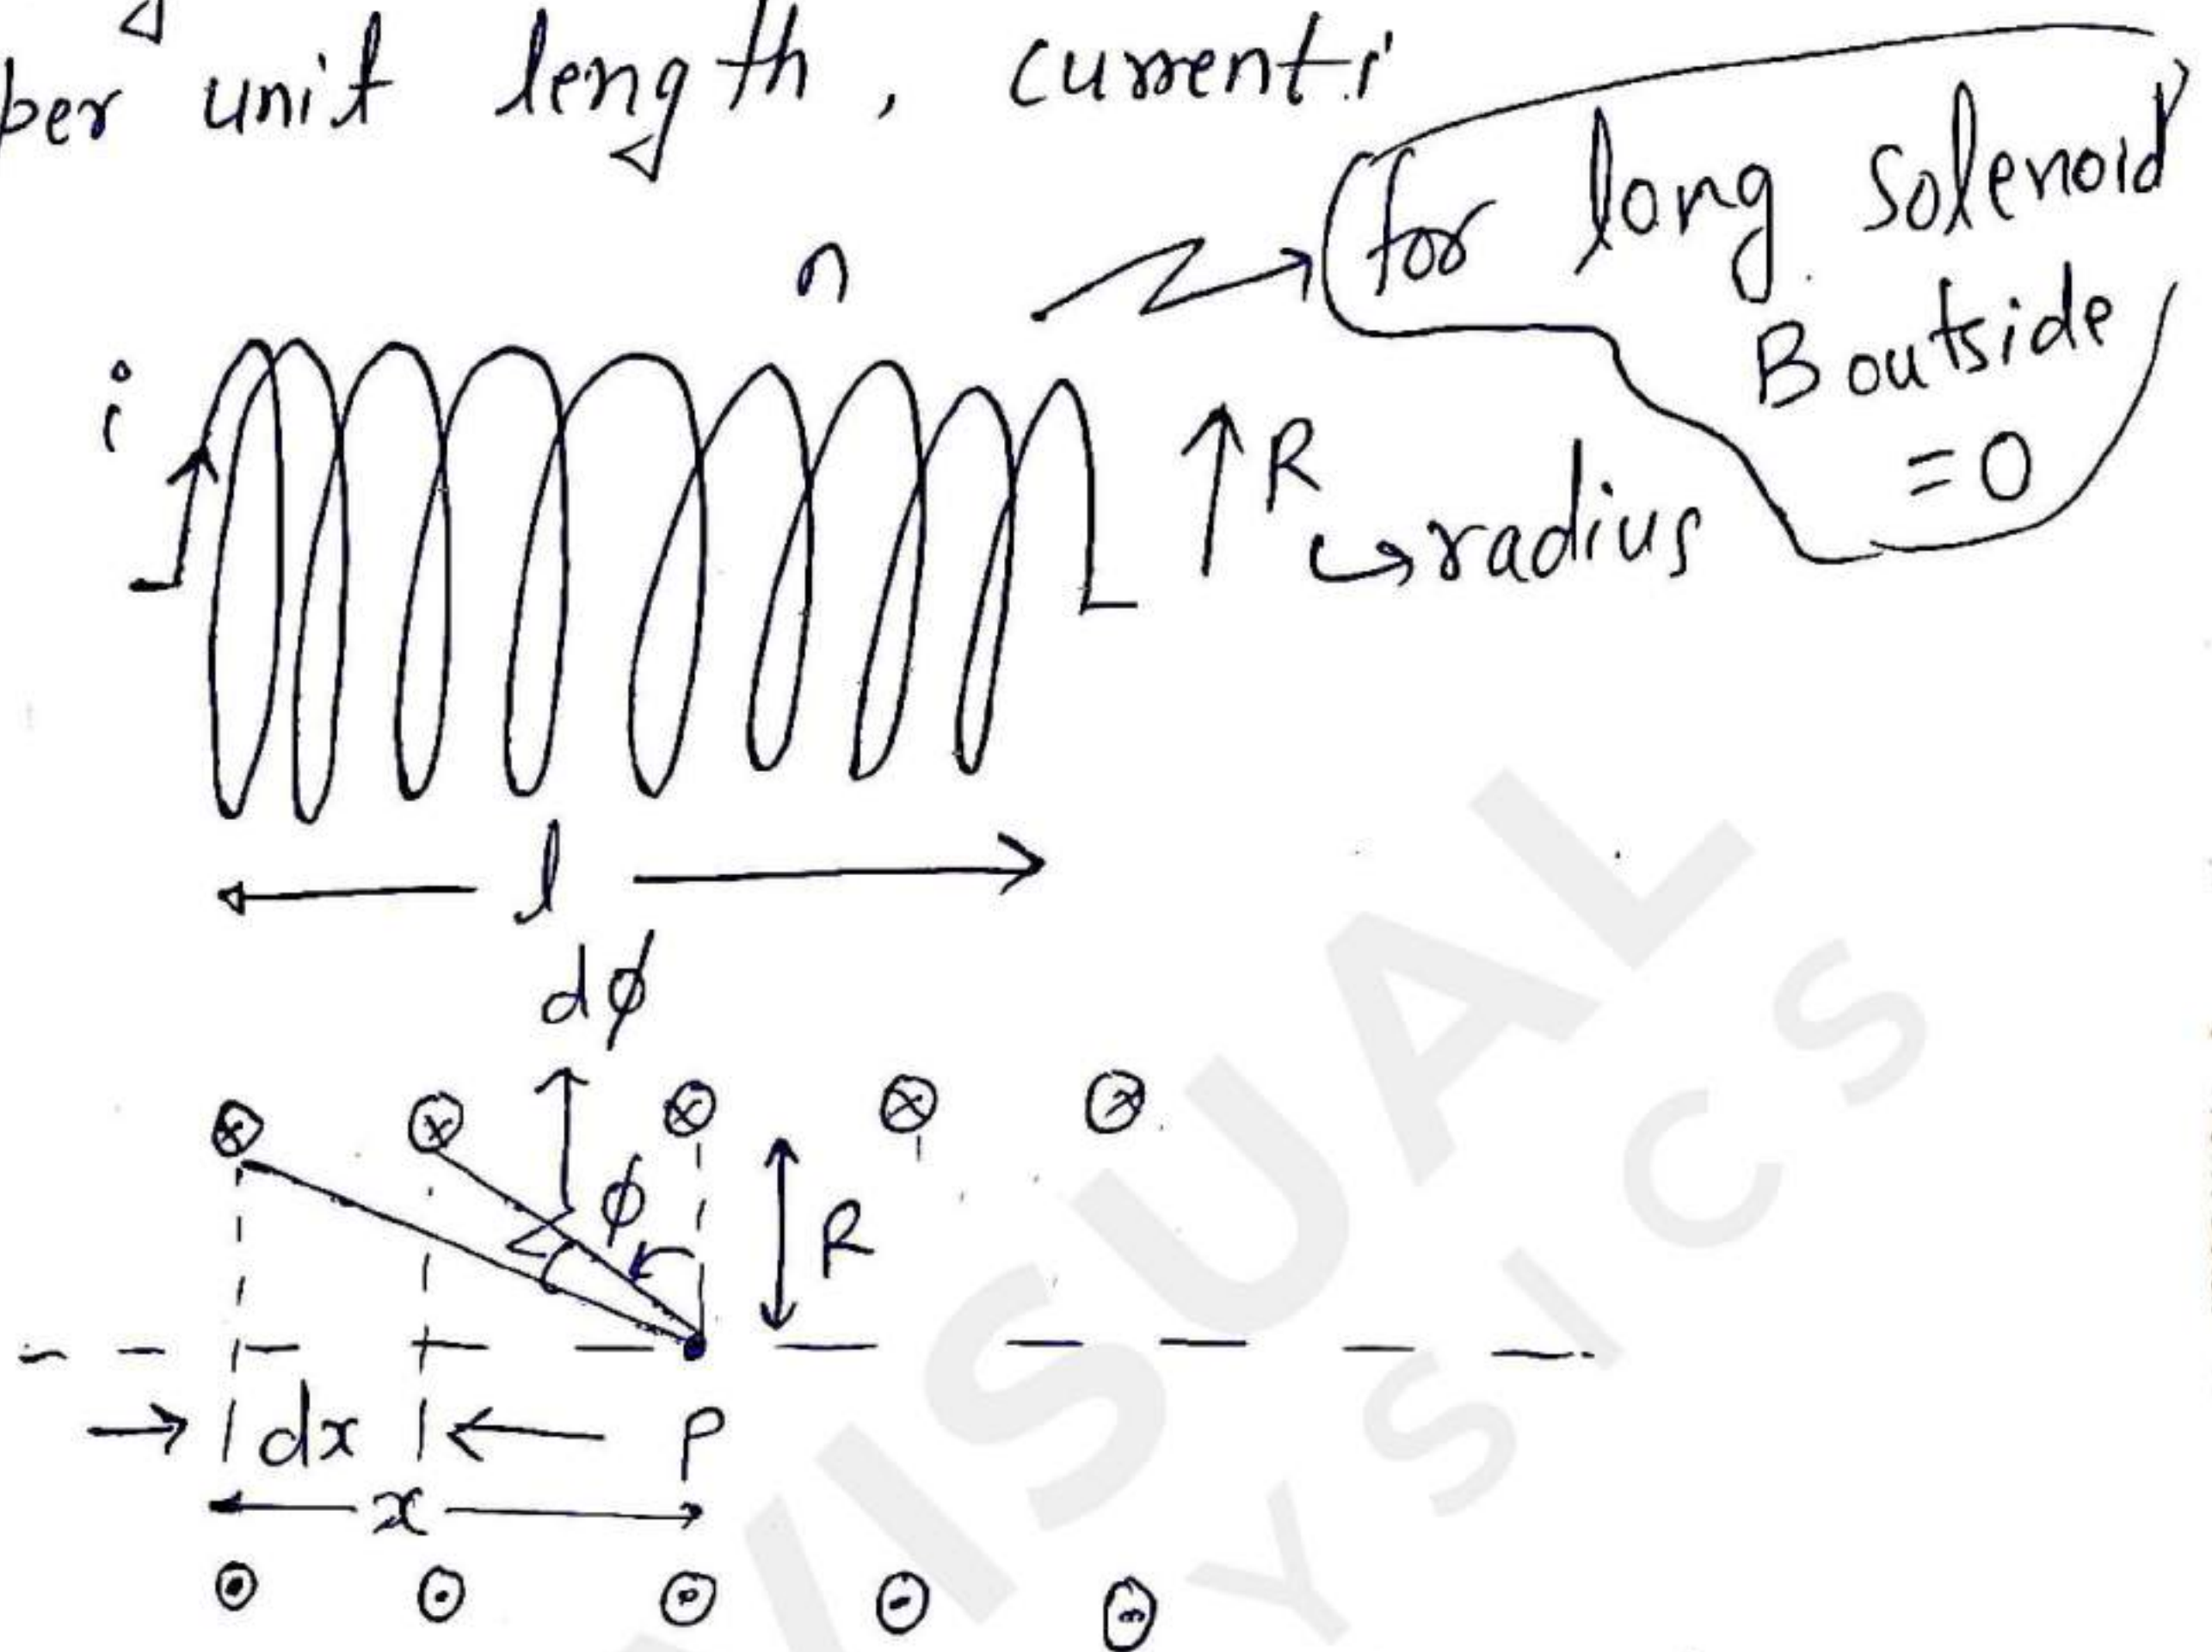 per unit length, current i
n
for long solenoid
B outside
= 0
i
R
radius
l
dϕ
ϕ
R
dx
P
x
VISUAL
PHYSICS